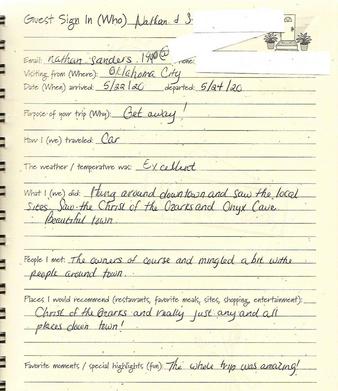 Guest Sign In (Who) Nathan & S
Email: nathan sanders.1400@
Visiting from (Where): Oklahoma City
Date (When) arrived: 5/22/20 departed: 5/24/20
Purpose of your trip (Why): Get away!
How I (we) traveled: Car
The weather / temperature was: Excellent
What I (we) did: Hung around downtown and saw the local
sites. Saw the Christ of the Ozarks and Onyx Cave.
Beautiful town.
People I met: The owners of course and mingled a bit with
people around town.
Places I would recommend (restaurants, favorite meals, sites, shopping, entertainment):
Christ of the Ozarks and really just any and all
places down town!
Favorite moments / special highlights (fun) The whole trip was amazing!